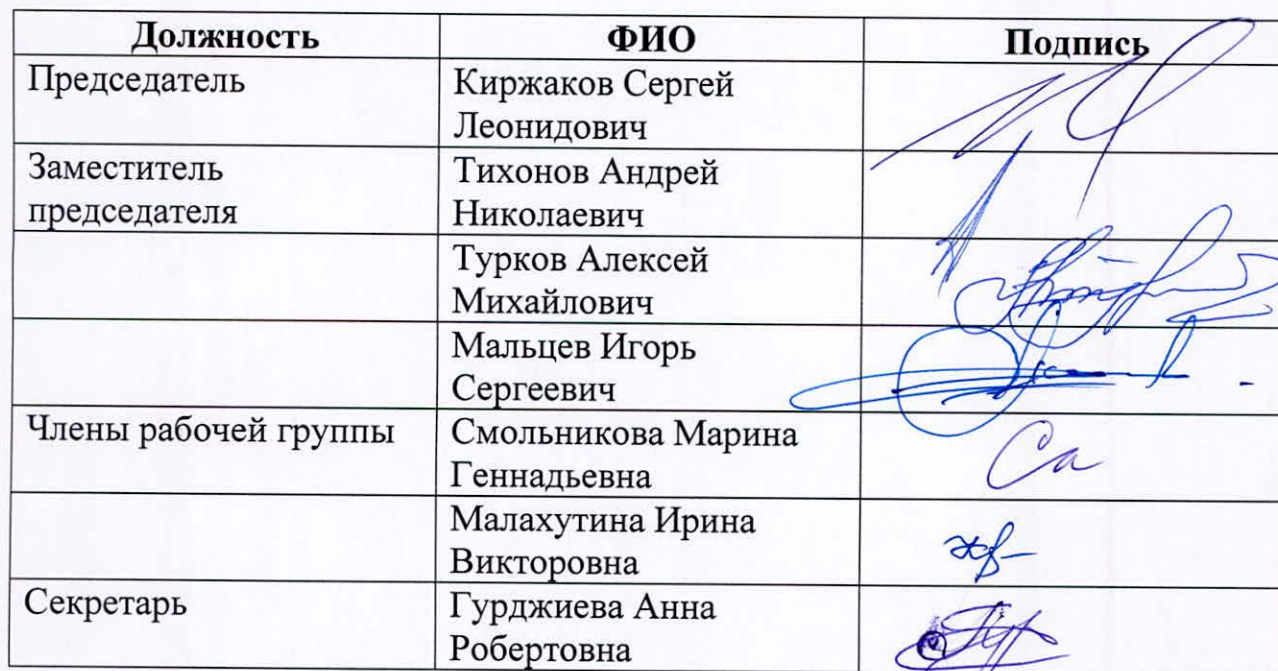 Должность ФИО Подпись
Председатель Киржаков Сергей
Леонидович
Заместитель Тихонов Андрей
председателя Николаевич
Турков Алексей
Михайлович
Мальцев Игорь
Сергеевич
Члены рабочей группы Смольникова Марина
Геннадьевна
Малахутина Ирина
Викторовна
Секретарь Гурджиева Анна
Робертовна